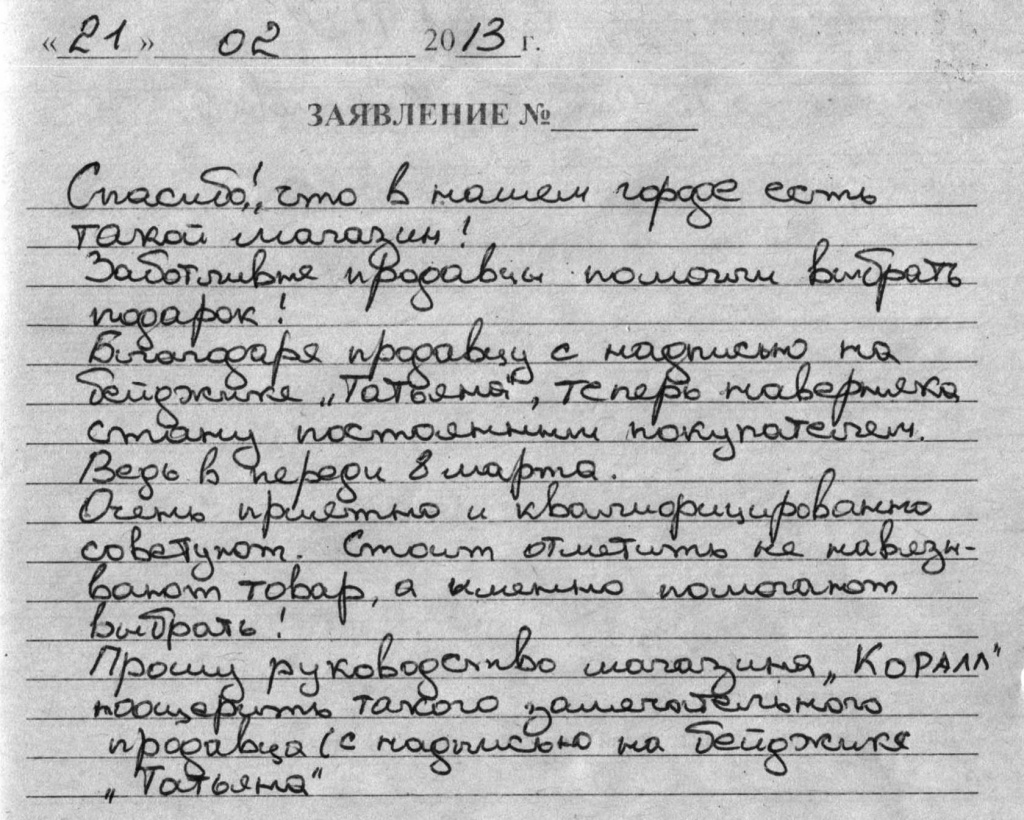 « 21 » 02 2013 г.
ЗАЯВЛЕНИЕ №
Спасибо!, что в нашем городе есть
такой магазин!
Заботливые продавцы помогли выбрать
подарок!
Благодаря продавцу с надписью на
бейджике „Татьяна", теперь наверняка
стану постоянным покупателем.
Ведь в переди 8 марта.
Очень приятно и квалифицированно
советуют. Стоит отметить не навязы-
вают товар, а именно помогают
выбрать!
Прошу руководство магазина „КОРАЛЛ"
поощерить такого замечательного
продавца (с надписью на бейджике
„Татьяна"